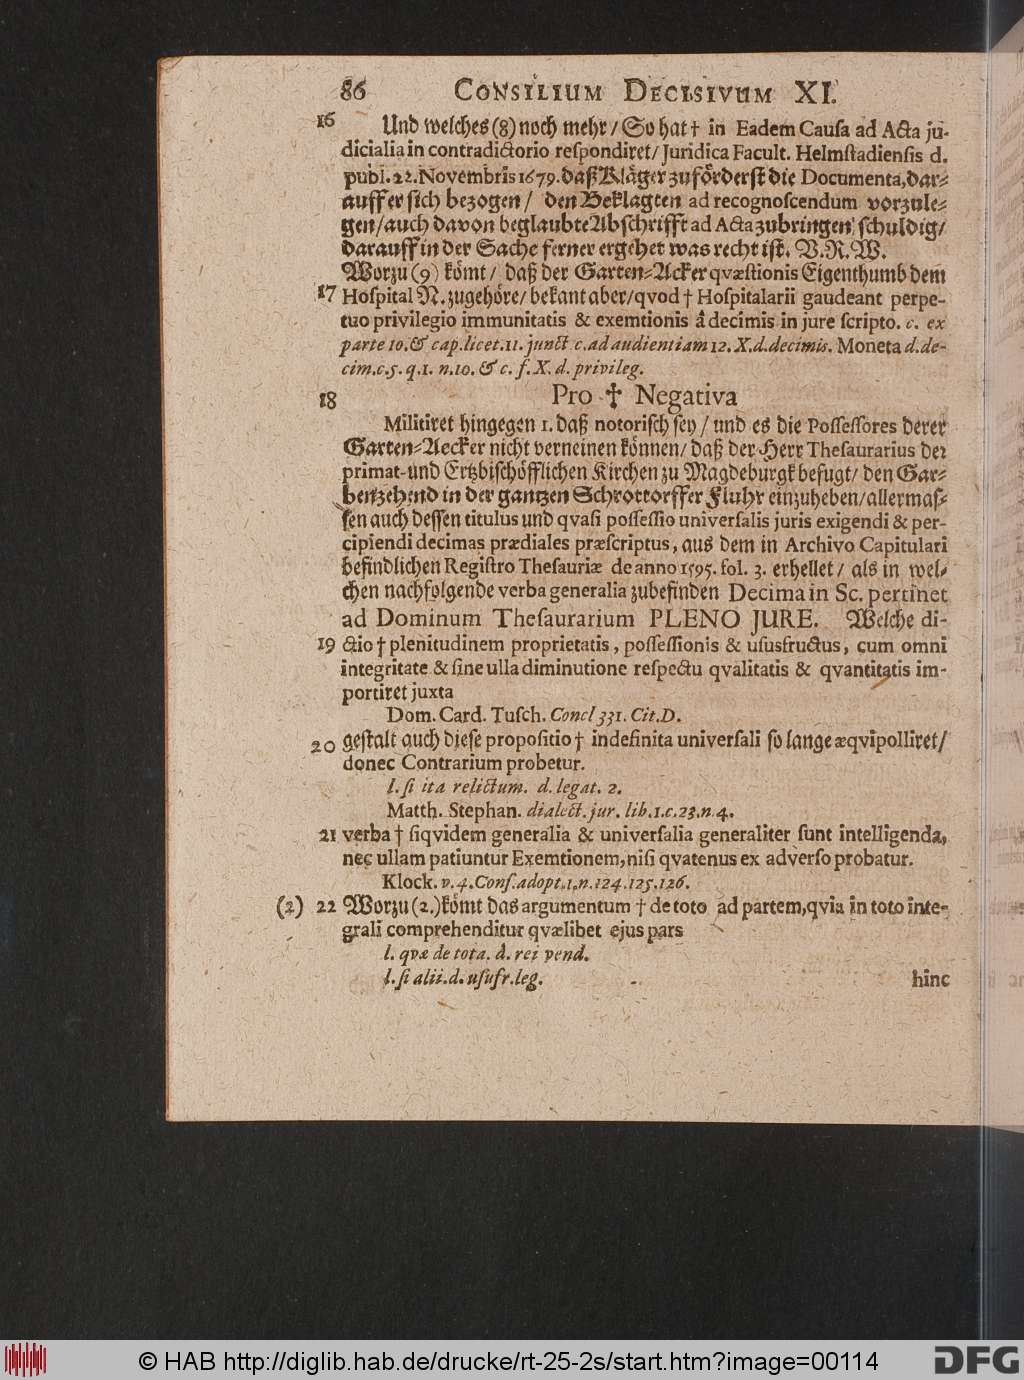 86 CONSILIUM DECISIVUM XI.
16 Und welches (8) noch mehr / So hat † in Eadem Cauſa ad Acta ju-
dicialia in contradictorio reſpondiret / Juridica Facult. Helmſtadienſis d.
publ. 22. Novembris 1679. daß Kläger zuförderſt die Documenta, dar-
auff er ſich bezogen / den Beklagten ad recognoſcendum vorzule-
gen / auch davon beglaubte Abſchrifft ad Acta zubringen ſchuldig /
darauff in der Sache ferner ergehet was recht iſt. V. R. W.
Worzu (9) kömt / daß der Garten-Acker qvæſtionis Eigenthumb dem
17 Hoſpital N. zugehöre / bekant aber / qvod † Hoſpitalarii gaudeant perpe-
tuo privilegio immunitatis & exemtionis â decimis in jure ſcripto. c. ex
parte 10. & cap. licet. 11. junct c. ad audientiam 12. X. d. decimis. Moneta d. de-
cim. c. 5. q. 1. n. 10. & c. f. X. d. privileg.
18 Pro † Negativa
Militiret hingegen 1. daß notoriſch ſey / und es die Poſſeſſores derer
Garten-Aecker nicht verneinen können / daß der Herr Theſaurarius der
primat- und Ertzbiſchöfflichen Kirchen zu Magdeburgk befugt / den Gar-
benzehend in der gantzen Schrottorffer Fluhr einzuheben / allermaſ-
ſen auch deſſen titulus und qvaſi poſſeſſio univerſalis juris exigendi & per-
cipiendi decimas prædiales præſcriptus, aus dem in Archivo Capitulari
befindlichen Regiſtro Theſauriæ de anno 1595. fol. 3. erhellet / als in wel-
chen nachfolgende verba generalia zubefinden Decima in Sc. pertinet
ad Dominum Theſaurarium PLENO JURE. Welche di-
19 ctio † plenitudinem proprietatis, poſſeſſionis & uſusfructus, cum omni
integritate & ſine ulla diminutione reſpectu qvalitatis & qvantitatis im-
portiret juxta
Dom. Card. Tuſch. Concl 331. Cit. D.
20 geſtalt auch dieſe propoſitio † indefinita univerſali ſo lange æqvipolliret /
donec Contrarium probetur.
l. ſi ita relictum. d. legat. 2.
Matth. Stephan. dialect. jur. lib. 1. c. 23. n. 4.
21 verba † ſiqvidem generalia & univerſalia generaliter ſunt intelligenda,
nec ullam patiuntur Exemtionem, niſi qvatenus ex adverſo probatur.
Klock. v. 4. Conſ. adopt. 1. n. 124. 125. 126.
(2) 22 Worzu (2.) kömt das argumentum † de toto ad partem, qvia in toto inte-
grali comprehenditur qvælibet ejus pars
l. qvæ de tota. d. rei vend.
l. ſi alii. d. uſufr. leg.
hinc
© HAB http://diglib.hab.de/drucke/rt-25-2s/start.htm?image=00114
DFG